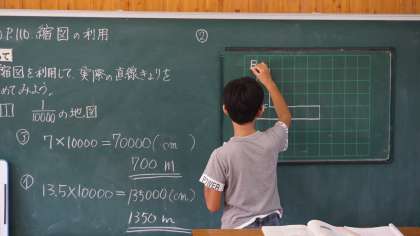 P.110. 縮図の利用
②
って
縮図を利用して、実際の直線きょりを
めてみよう。
1 1/10000 の地図
③ 7×10000=70000(cm)
700 m
① 13.5×10000=135000(cm)
1350 m
POWER